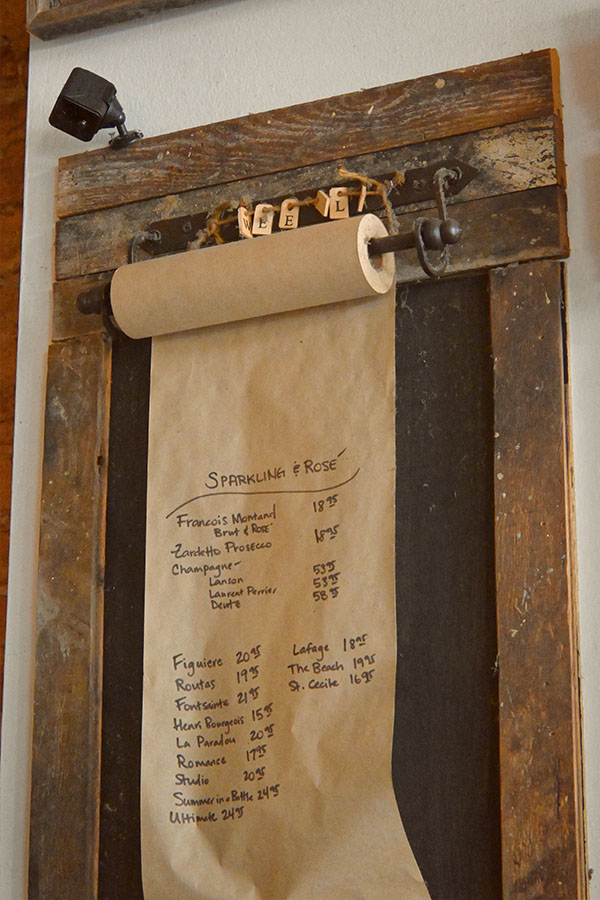 E E L
SPARKLING & ROSÉ
Francois Montand 18.95
Brut & Rosé
Zardetto Prosecco 18.95
Champagne-
Lanson 53.95
Laurent Perrier 53.95
Deutz 58.95
Figuiere 20.95
Routas 19.95
Fontsainte 21.95
Henri Bourgeois 15.95
La Paradou 20.95
Romance 17.95
Studio 20.95
Summer in a Bottle 24.95
Ultimate 24.95
Lafage 18.95
The Beach 19.95
St. Cecile 16.95